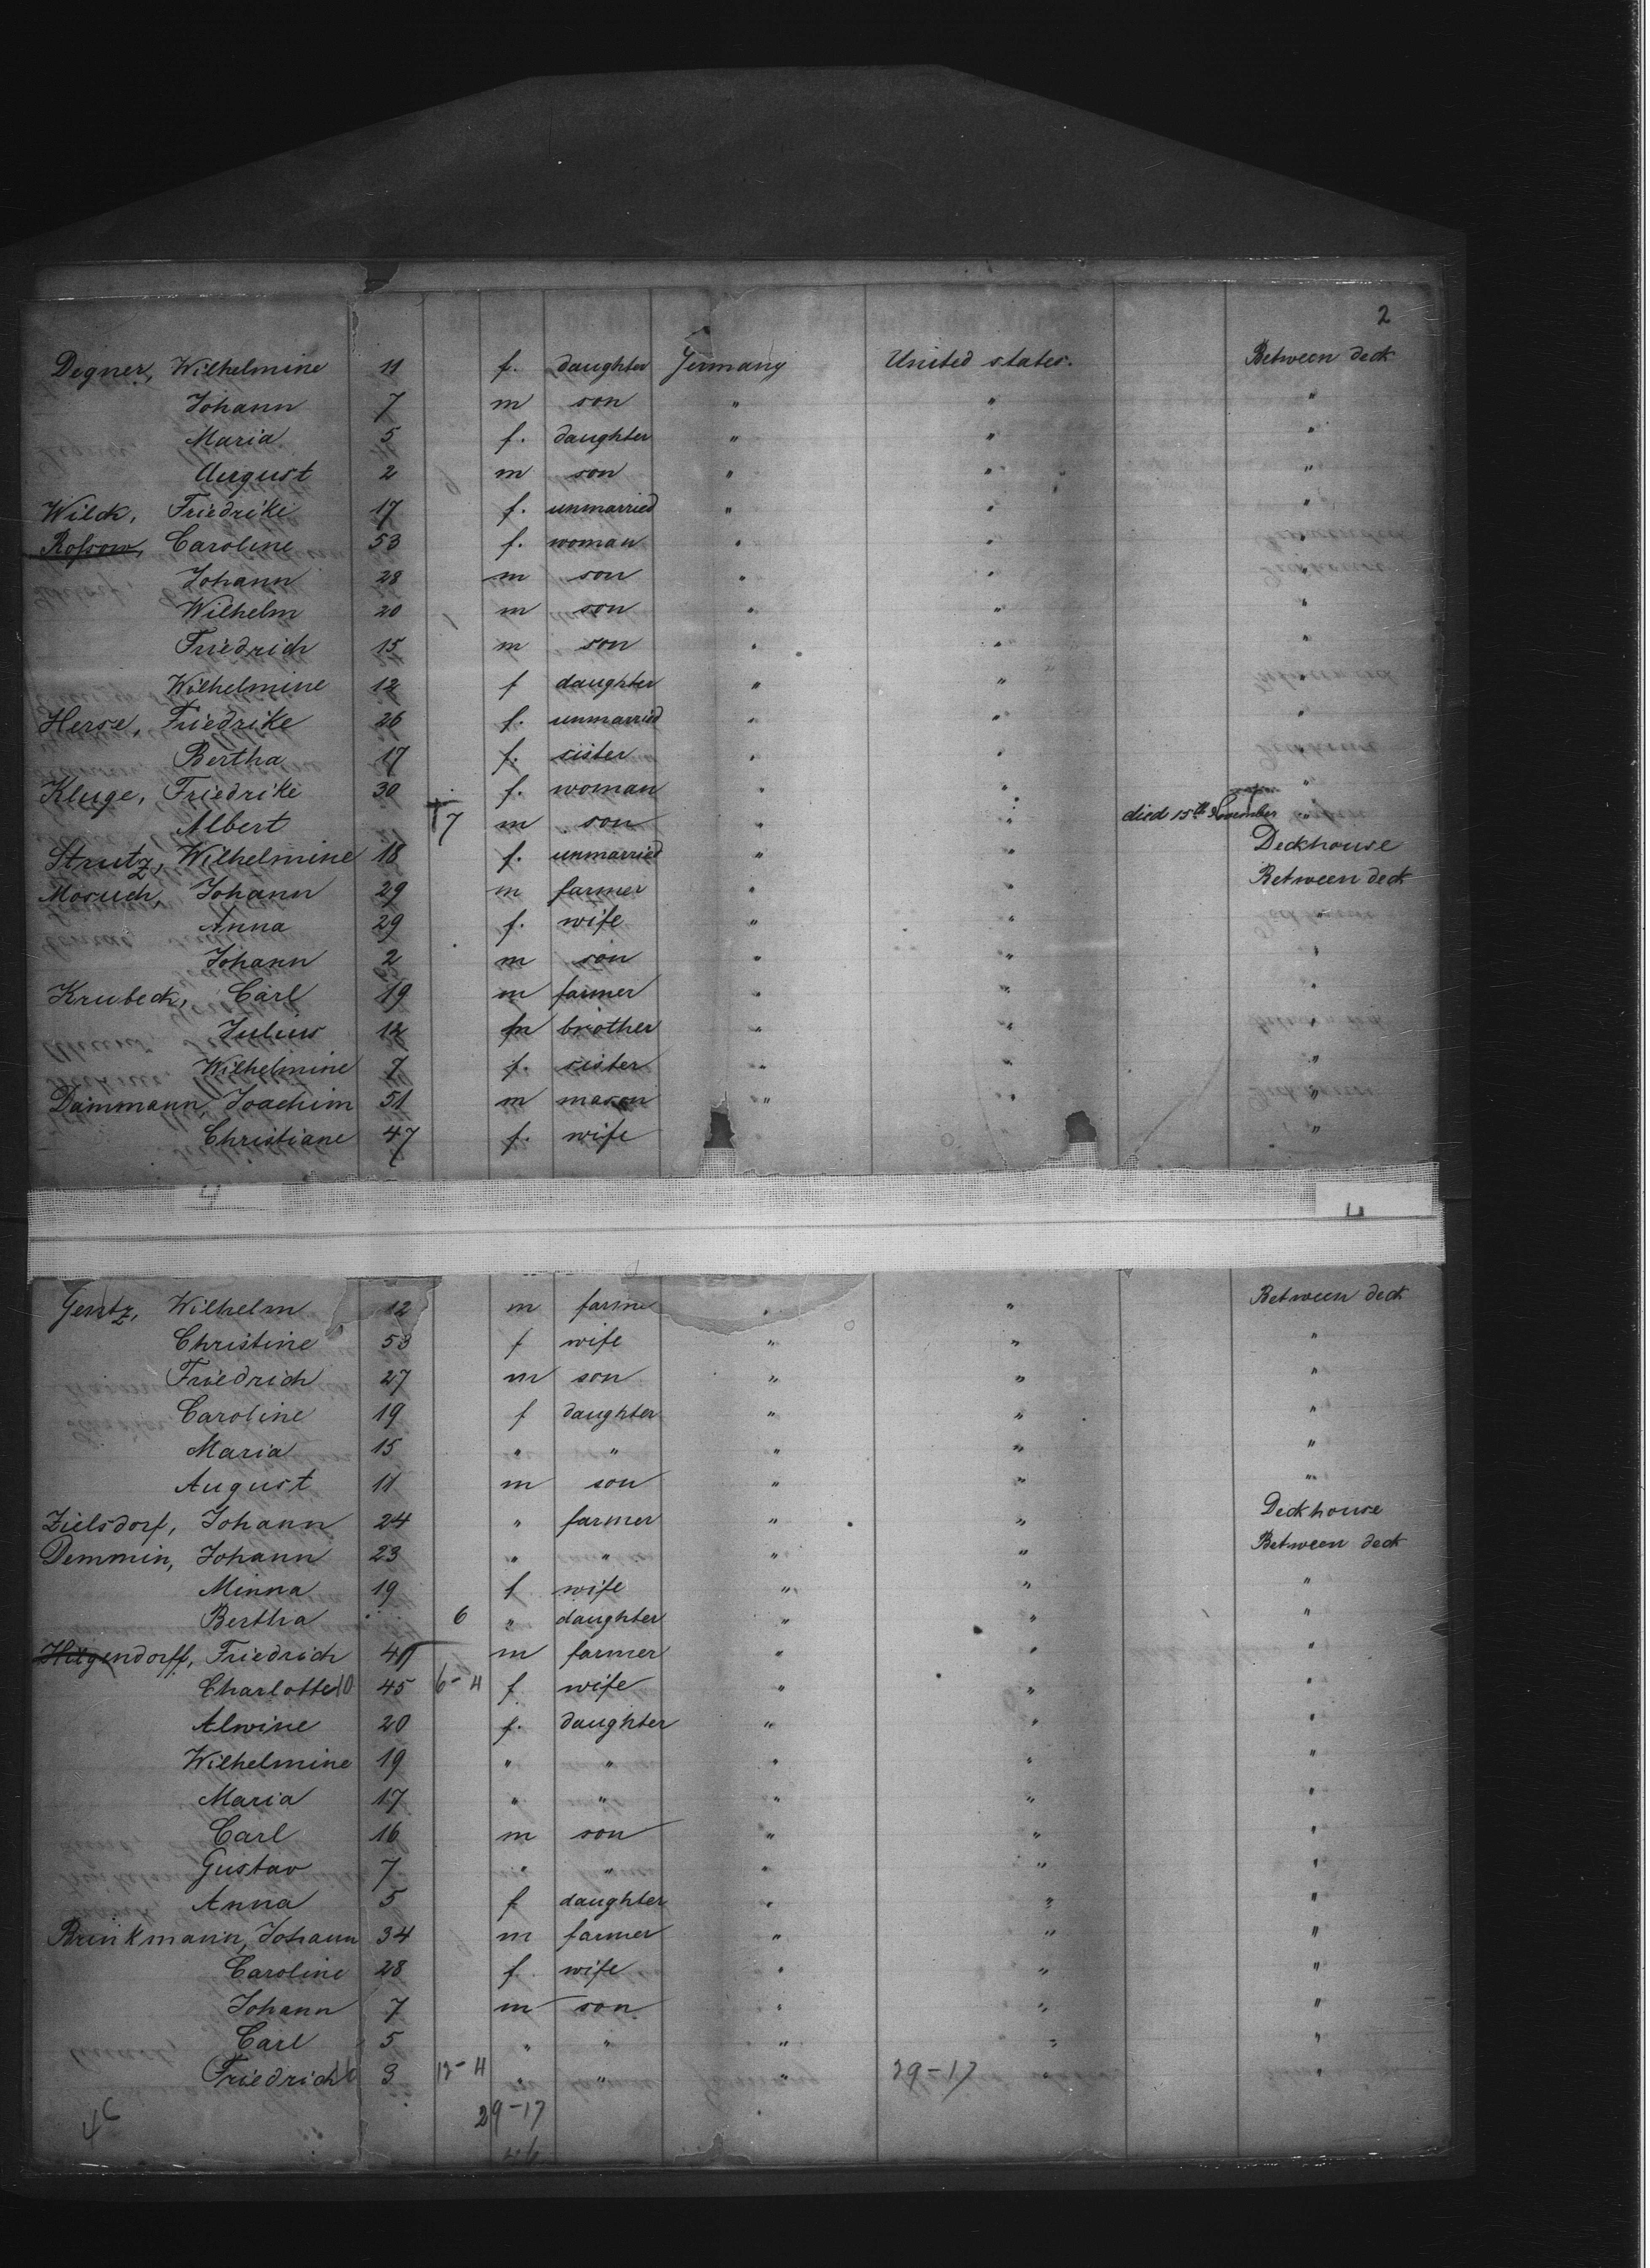 2
Degner, Wilhelmine 11 f. daughter Germany United states. Between deck
Johann 7 m son " " "
Maria 5 f. daughter " " "
August 2 m son " " "
Wilck, Friedrike 17 f. unmarried " " "
Rofsow, Caroline 53 f. woman " " "
Johann 28 m son " " "
Wilhelm 20 m son " " "
Friedrich 15 m son " " "
Wilhelmine 12 f daughter " " "
Herse, Friedrike 26 f. unmarried " " "
Bertha 17 f. sister " " "
Kluge, Friedrike 30 f. woman " " "
Albert † 7 m son " " died 15th November "
Strutz, Wilhelmine 18 f. unmarried " " Deckhouse
Moruch, Johann 29 m farmer " " Between deck
Anna 29 f. wife " " "
Johann 2 m son " " "
Krubeck, Carl 19 m farmer " " "
Julius 12 m brother " " "
Wilhelmine 7 f. sister " " "
Dammann, Joachim 51 m mason " " "
Christiane 47 f. wife "
4 4
Gentz, Wilhelm 12 m farme " " Between deck
Christine 53 f wife " " "
Friedrich 27 m son " " "
Caroline 19 f daughter " " "
Maria 15 " " " " "
August 11 m son " " "
Zielsdorf, Johann 24 " farmer " " Deckhouse
Demmin, Johann 23 " " " " Between deck
Minna 19 f wife " " "
Bertha 6 " daughter " " "
Hilgendorff, Friedrich m farmer " " "
Charlotte 45 6-4 f wife " " "
Alwine 20 f. daughter " " "
Wilhelmine 19 " " " " "
Maria 17 " " " " "
Carl 16 m son " " "
Gustav 7 " " " " "
Anna 5 f daughter " " "
Brinkmann, Johann 34 m farmer " " "
Caroline 28 f. wife " " "
Johann 7 m son " " "
Carl 5 " " " " "
Friedrich 3 12-4 " " " 29-17 " "
29-17
46